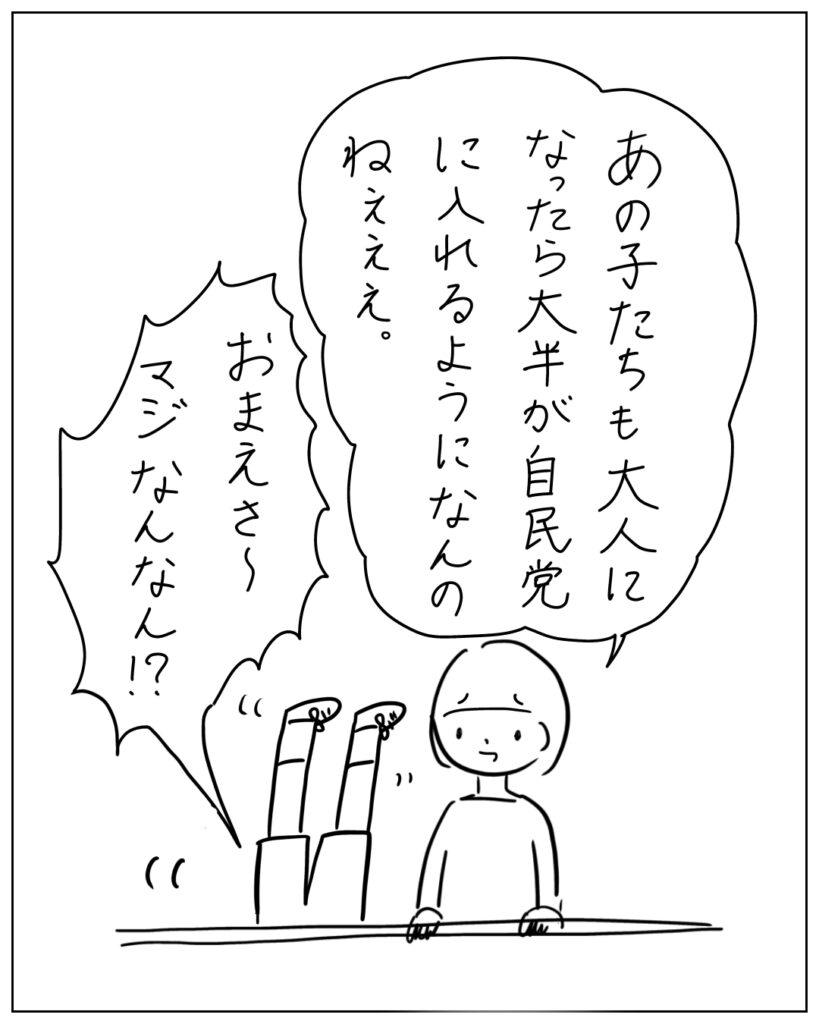 あの子たちも大人に
なったら大半が自民党
に入れるようになんの
ねぇぇぇ。
おまえさ〜
マジなんなん!?